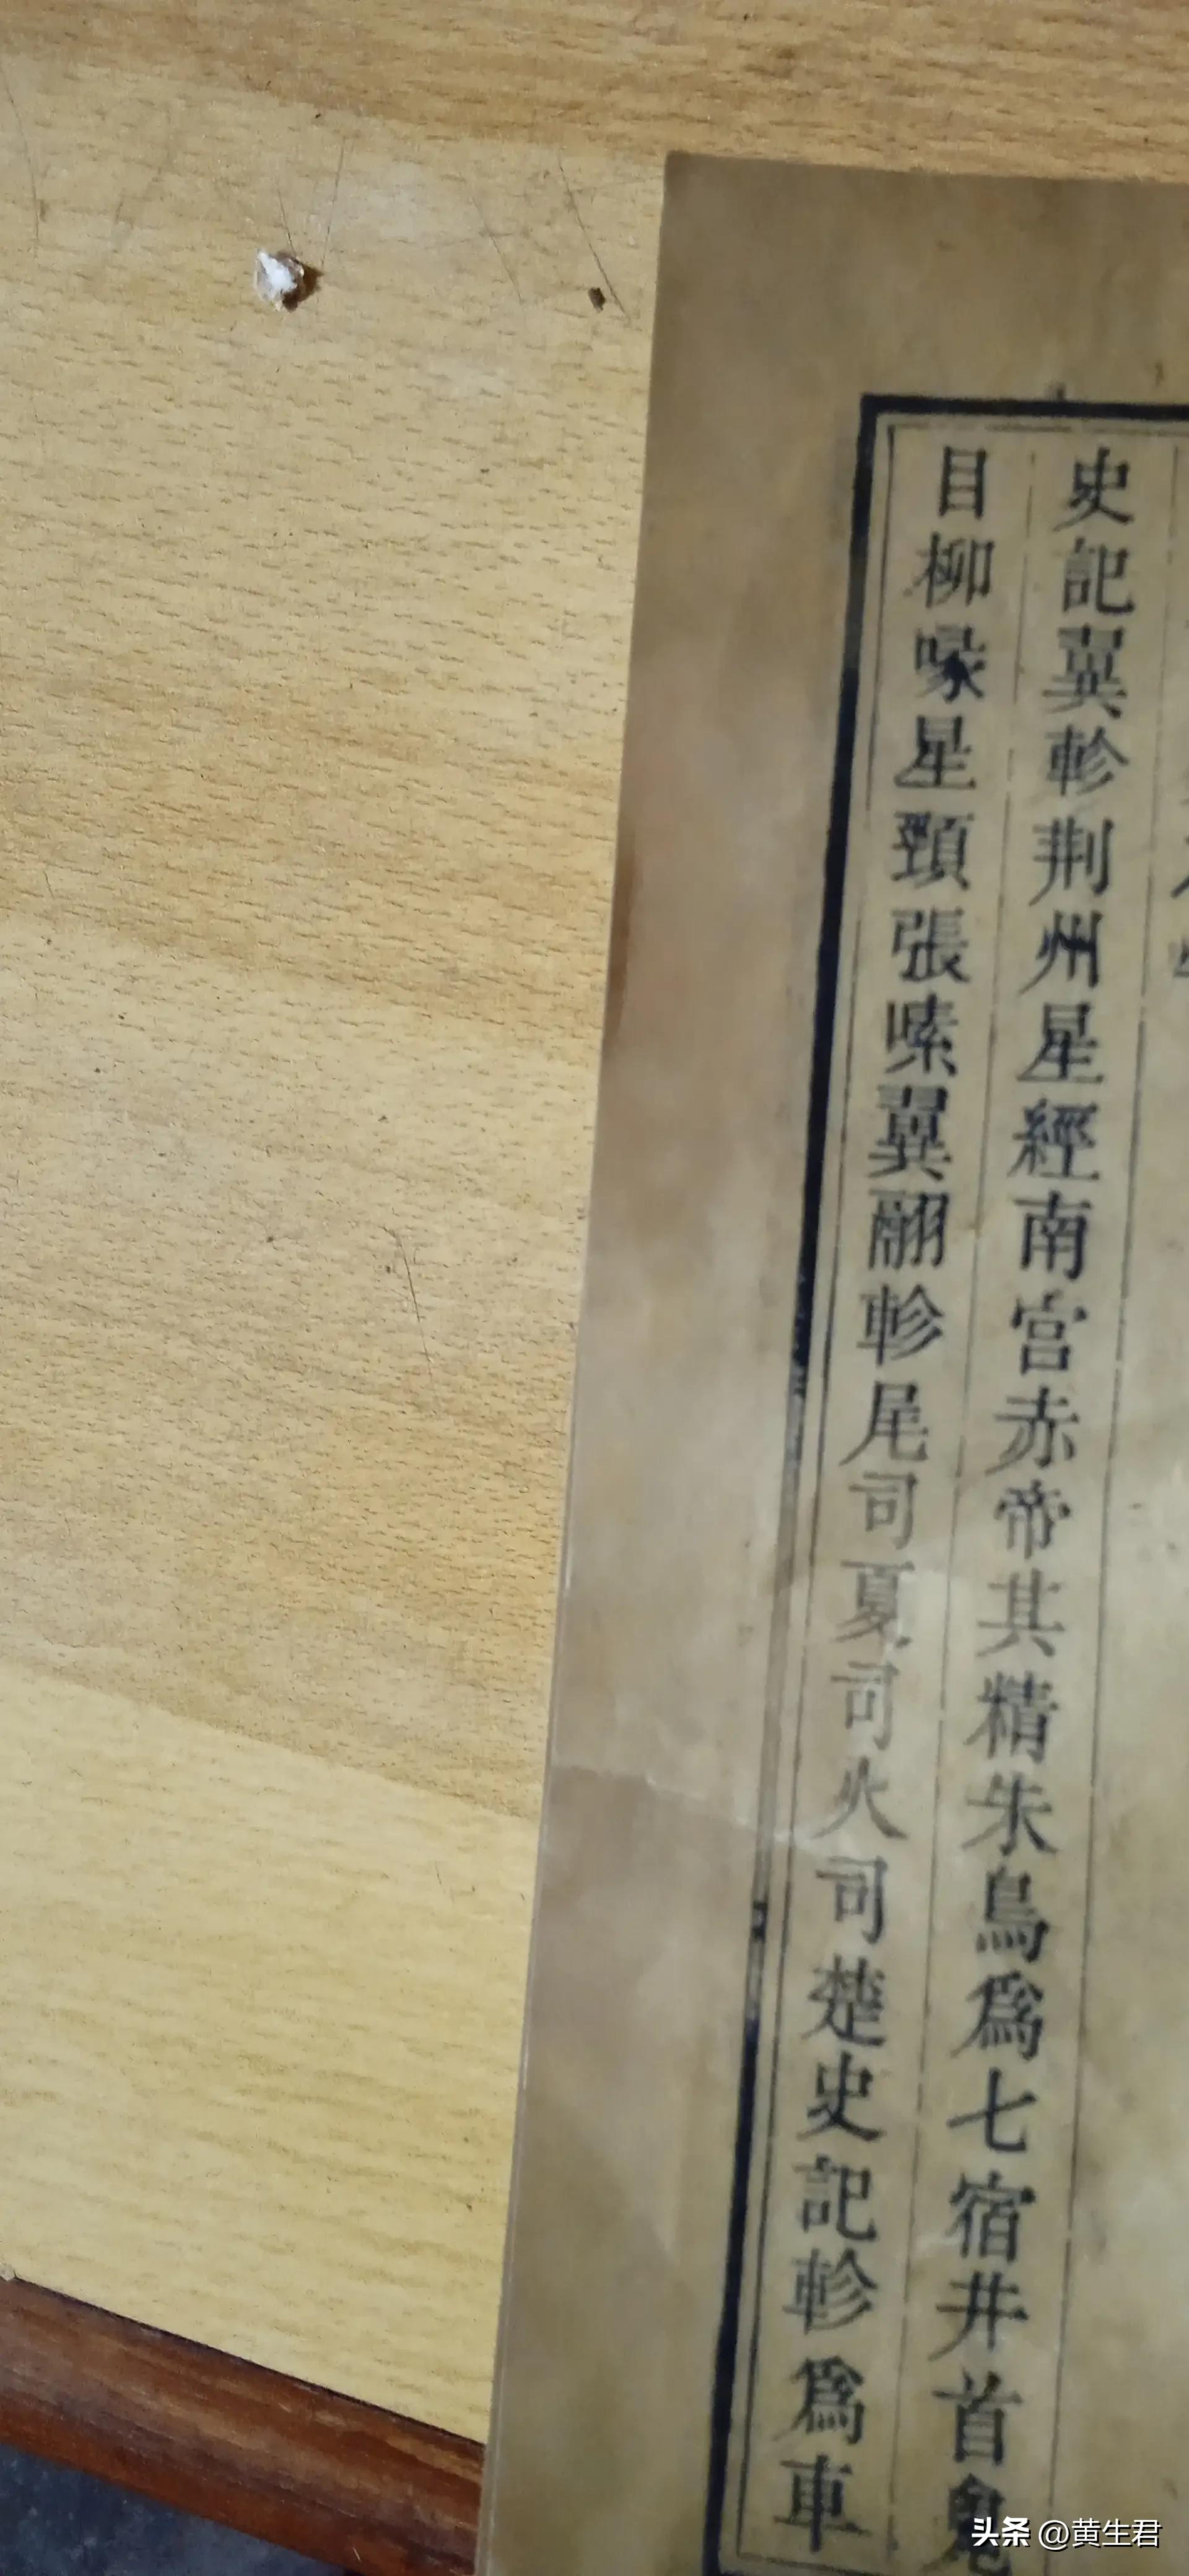 史記翼軫荆州星經南宫赤帝其精朱鳥爲七宿井首鬼
目柳喙星頸張嗉翼翮軫尾司夏司火司楚史記軫爲車
头条 @黄生君